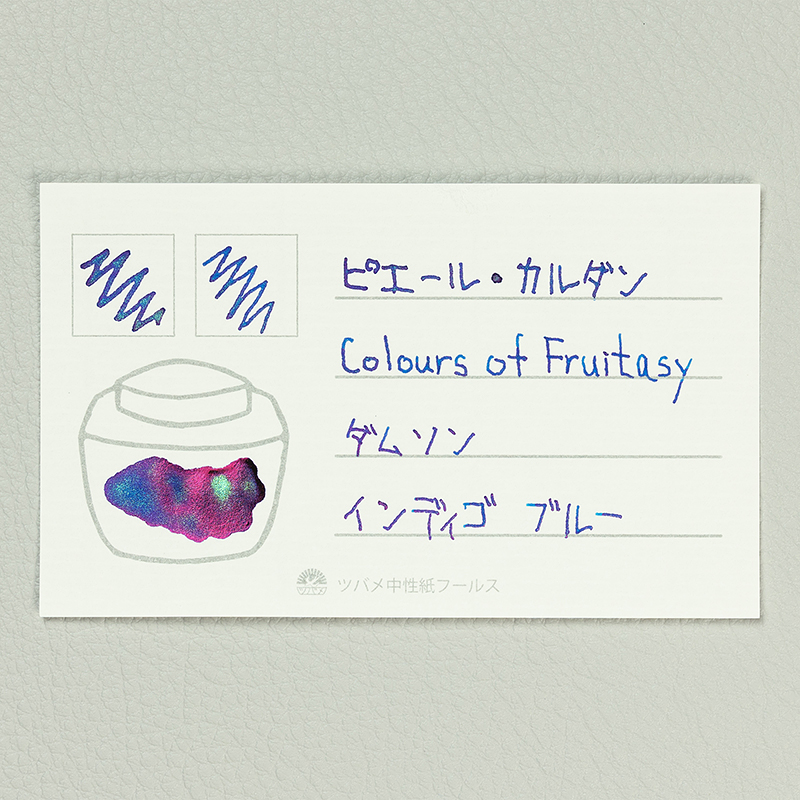 ピエール・カルダン
Colours of Fruitasy
ダムソン
インディゴ ブルー
ツバメ
ツバメ中性紙フールス